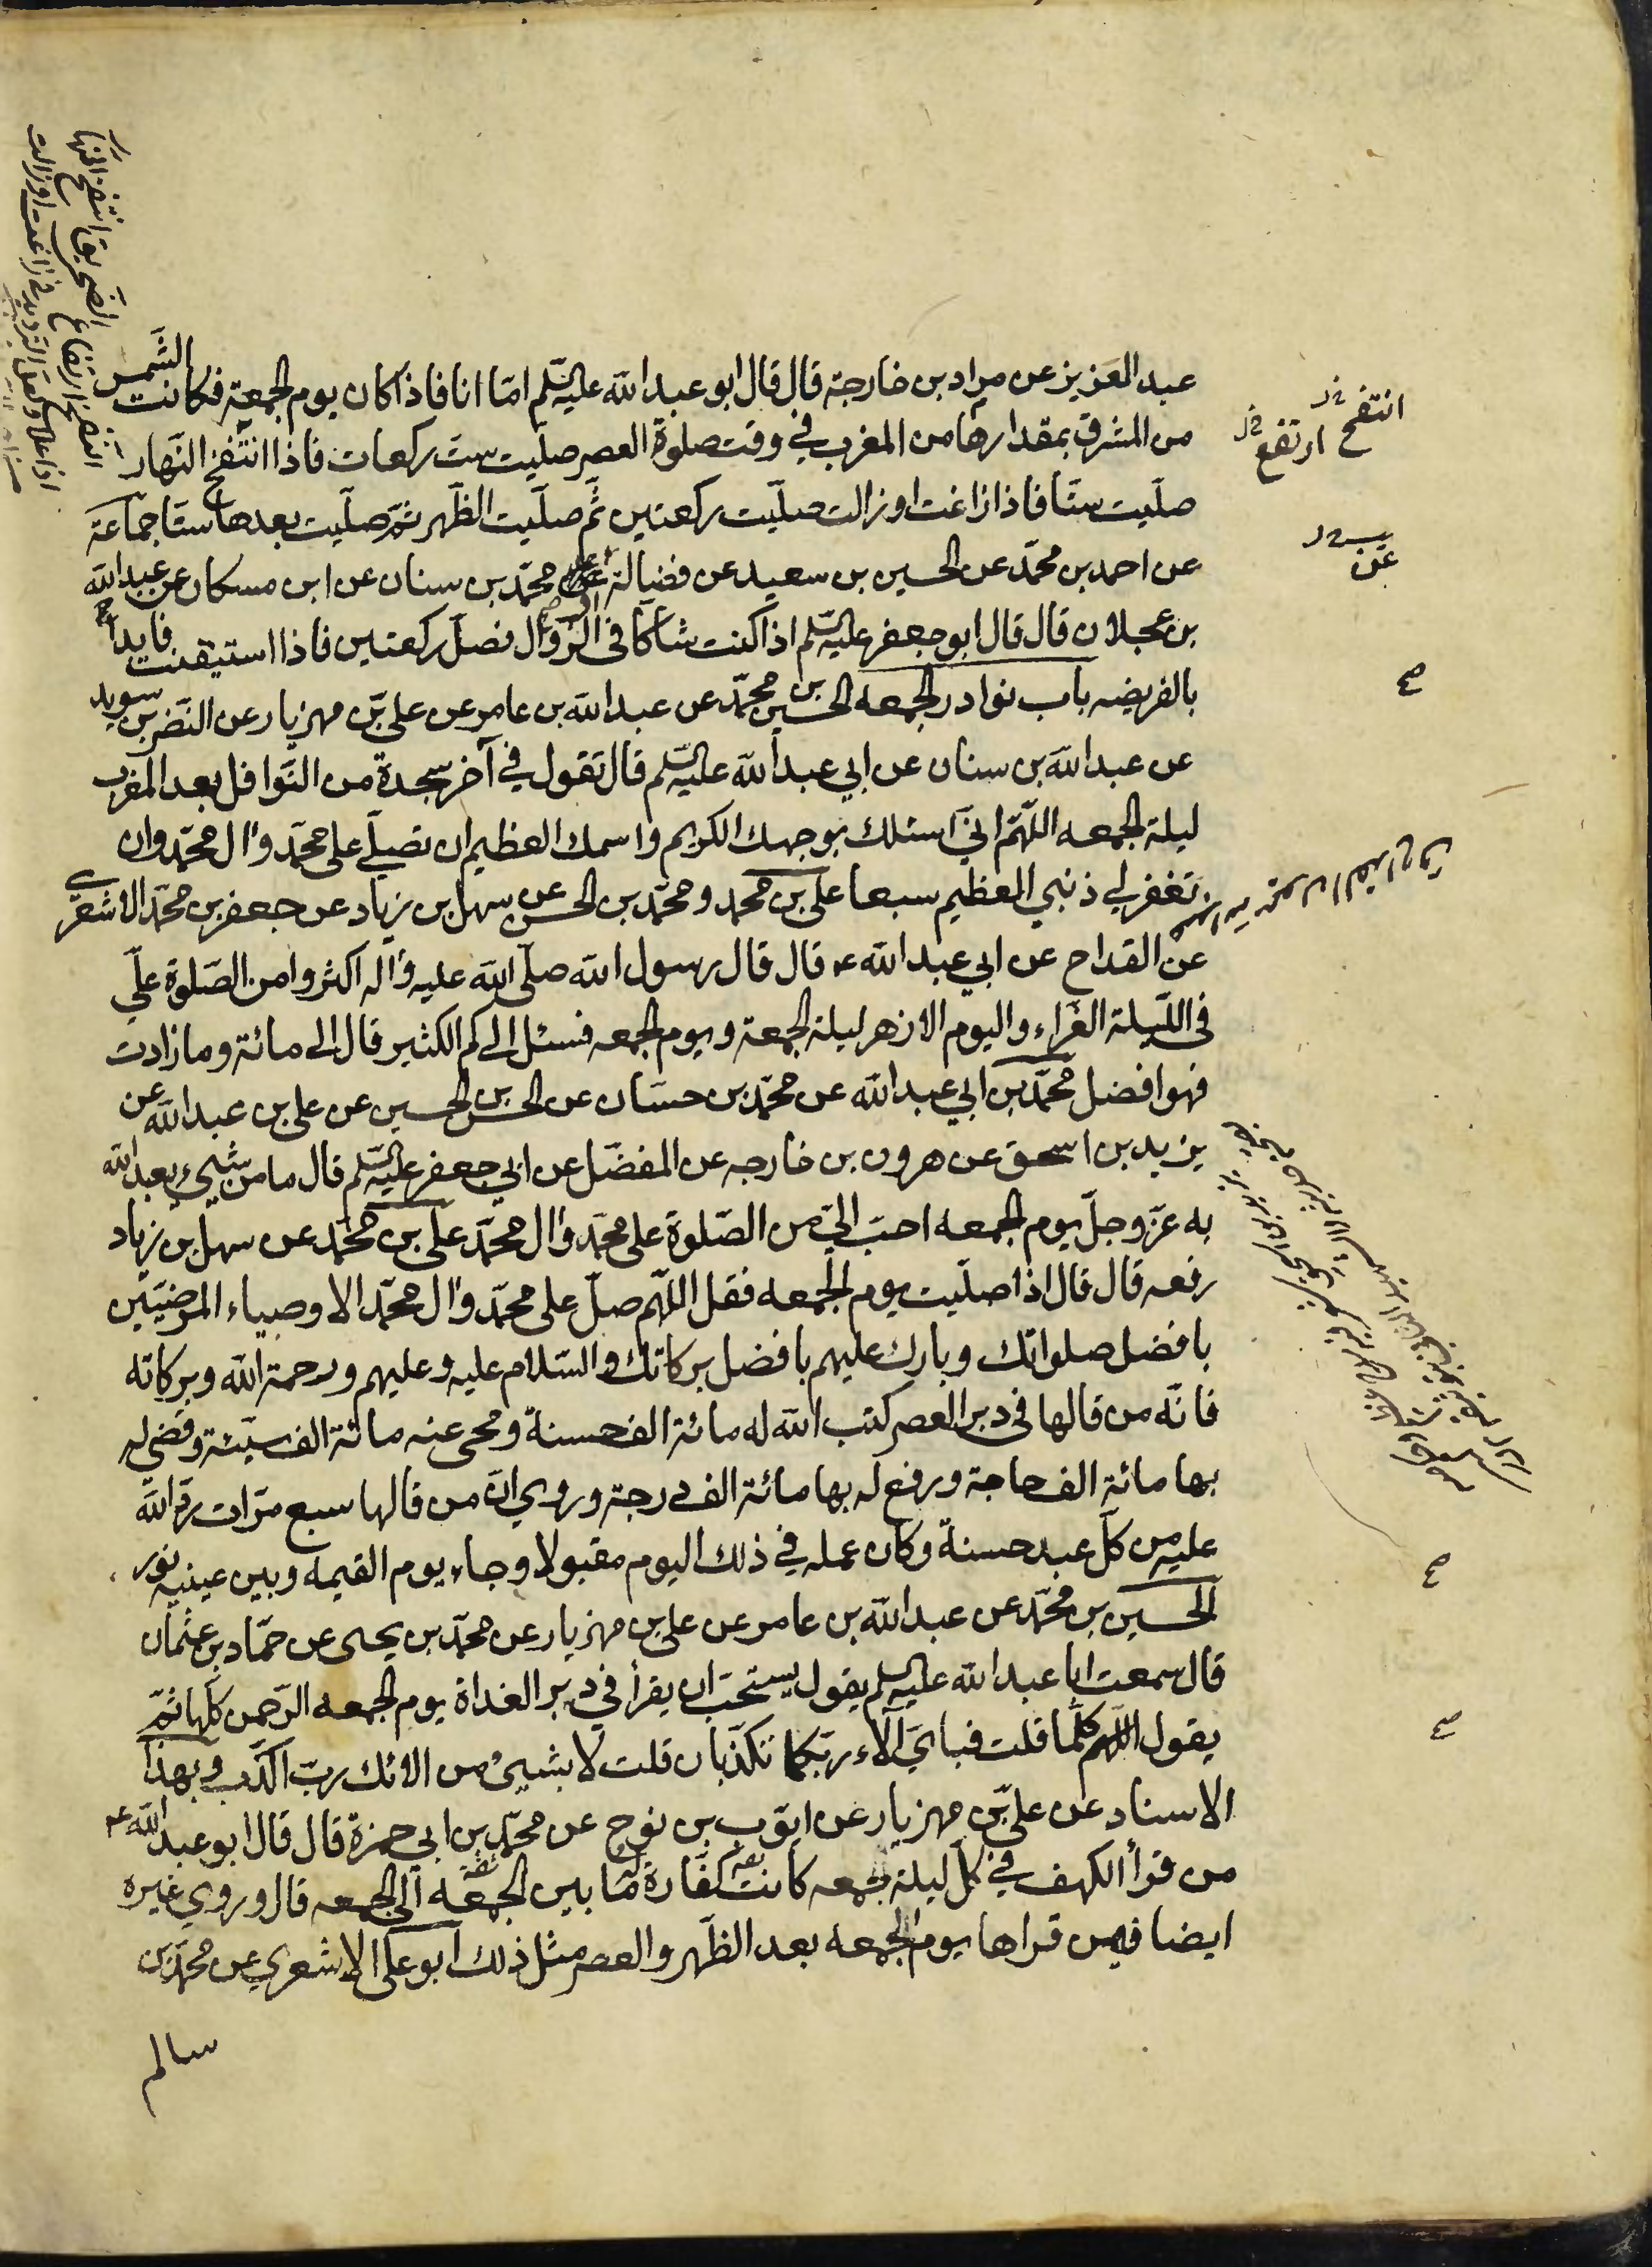 عبد العزيز عن مراد بن خارجة قال قال ابو عبد الله عليه السلم امّا انا فاذا كان يوم الجمعة فكانت الشّمس
من المشرق بمقدارها من المغرب في وقت صلوة العصر صلّيت ستّ ركعات فاذا انتفخ النّهار
صلّيت ستّا فاذا زاغت او زالت صلّيت ركعتين ثمّ صلّيت الظّهر ثمّ صلّيت بعدها ستّا جماعة
عن احمد بن محمّد عن الحسين بن سعيد عن فضالة محمّد بن سنان عن ابن مسكان عن عبد الله
بن عجلان قال قال ابو جعفر عليه السلم اذا كنت شاكّا في الزّوال فصلّ ركعتين فاذا استيقنت فابدأ
بالفريضه باب نوادر الجمعه الحسين بن محمّد عن عبد الله بن عامر عن علي بن مهزيار عن النّضر بن سويد
عن عبد الله بن سنان عن ابي عبد الله عليه السلم قال تقول في آخر سجدة من النّوافل بعد المغرب
ليلة الجمعه اللّهمّ انّي اسئلك بوجهك الكريم واسمك العظيم ان تصلّي على محمّد وآل محمّد وان
تغفر لي ذنبي العظيم سبعا علي بن محمد ومحمّد بن الحسن عن سهل بن زياد عن جعفر بن محمّد الاشعري
عن القداح عن ابي عبد الله ع قال قال رسول الله صلّى الله عليه وآله اكثروا من الصّلوة علّي
في اللّيلة الغرّاء واليوم الازهر ليلة الجمعة ويوم الجمعه فسئل الى كم الكثير قال الى مائة وما زادت
فهو افضل محمّد بن ابي عبد الله عن محمّد بن حسّان عن الحسن بن الحسين عن علي بن عبد الله عن
يزيد بن اسحق عن هرون بن خارجه عن المفضّل عن ابي جعفر عليه السلم قال ما من شيئ يعبد الله
به عزّ وجلّ يوم الجمعه احبّ اليّ من الصّلوة على محمّد وآل محمّد علي بن محمّد عن سهل بن زياد
رفعه قال قال اذا صلّيت يوم الجمعه فقل اللّهمّ صلّ على محمّد وآل محمّد الاوصياء المرضيّين
بافضل صلواتك وبارك عليهم بافضل بركاتك والسّلام عليه وعليهم ورحمة الله وبركاته
فانّه من قالها في دبر العصر كتب الله له مائة الف حسنة ومحى عنه مائة الف سيّئة وقضى له
بها مائة الف حاجة ورفع له بها مائة الف درجة وروي انّ من قالها سبع مرّات ردّ الله
عليه من كلّ عبد حسنة وكان عمله في ذلك اليوم مقبولا وجاء يوم القيمه وبين عينيه نور
الحسين بن محمّد عن عبد الله بن عامر عن علي بن مهزيار عن محمّد بن يحيى عن حمّاد بن عثمان
قال سمعت ابا عبد الله عليه السلم يقول يستحبّ ان يقرأ في دبر الغداة يوم الجمعه الرّحمن كلّها ثمّ
يقول كلّما قلت فباىّ آلاء ربّكما تكذّبان قلت لا بشيئ من الائك ربّ اكذّب وبهذا
الاسناد عن عليّ بن مهزيار عن ايّوب بن نوح عن محمّد بن ابي حمزة قال قال ابو عبد الله ع
من قرأ الكهف في كلّ ليلة جمعه كانت كفّارة ما بين الجمعه الى الجمعه قال وروي غيره
ايضا فيمن قراها يوم الجمعه بعد الظّهر والعصر مثل ذلك ابو علي الاشعري عن محمّد بن
سالم
انتفخ خ ل
ارتفع خ ل